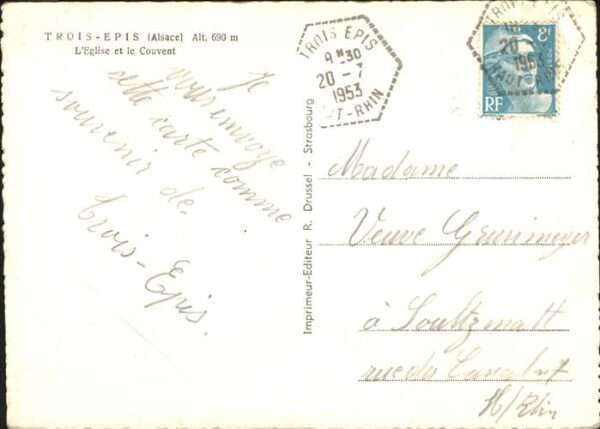 TROIS-EPIS (Alsace) Alt. 690 m
L'Eglise et le Couvent
Je
vous envoye
cette carte comme
souvenir de
Trois-Epis.
Imprimeur-Editeur R. Drussel - Strasbourg
TROIS EPIS
9 H 30
20 - 7
1953
HT-RHIN
TROIS EPIS
20
1953
HAUT-RHIN
8F
RF
Madame
Veuve
à Soultzmatt
rue du
H/Rhin